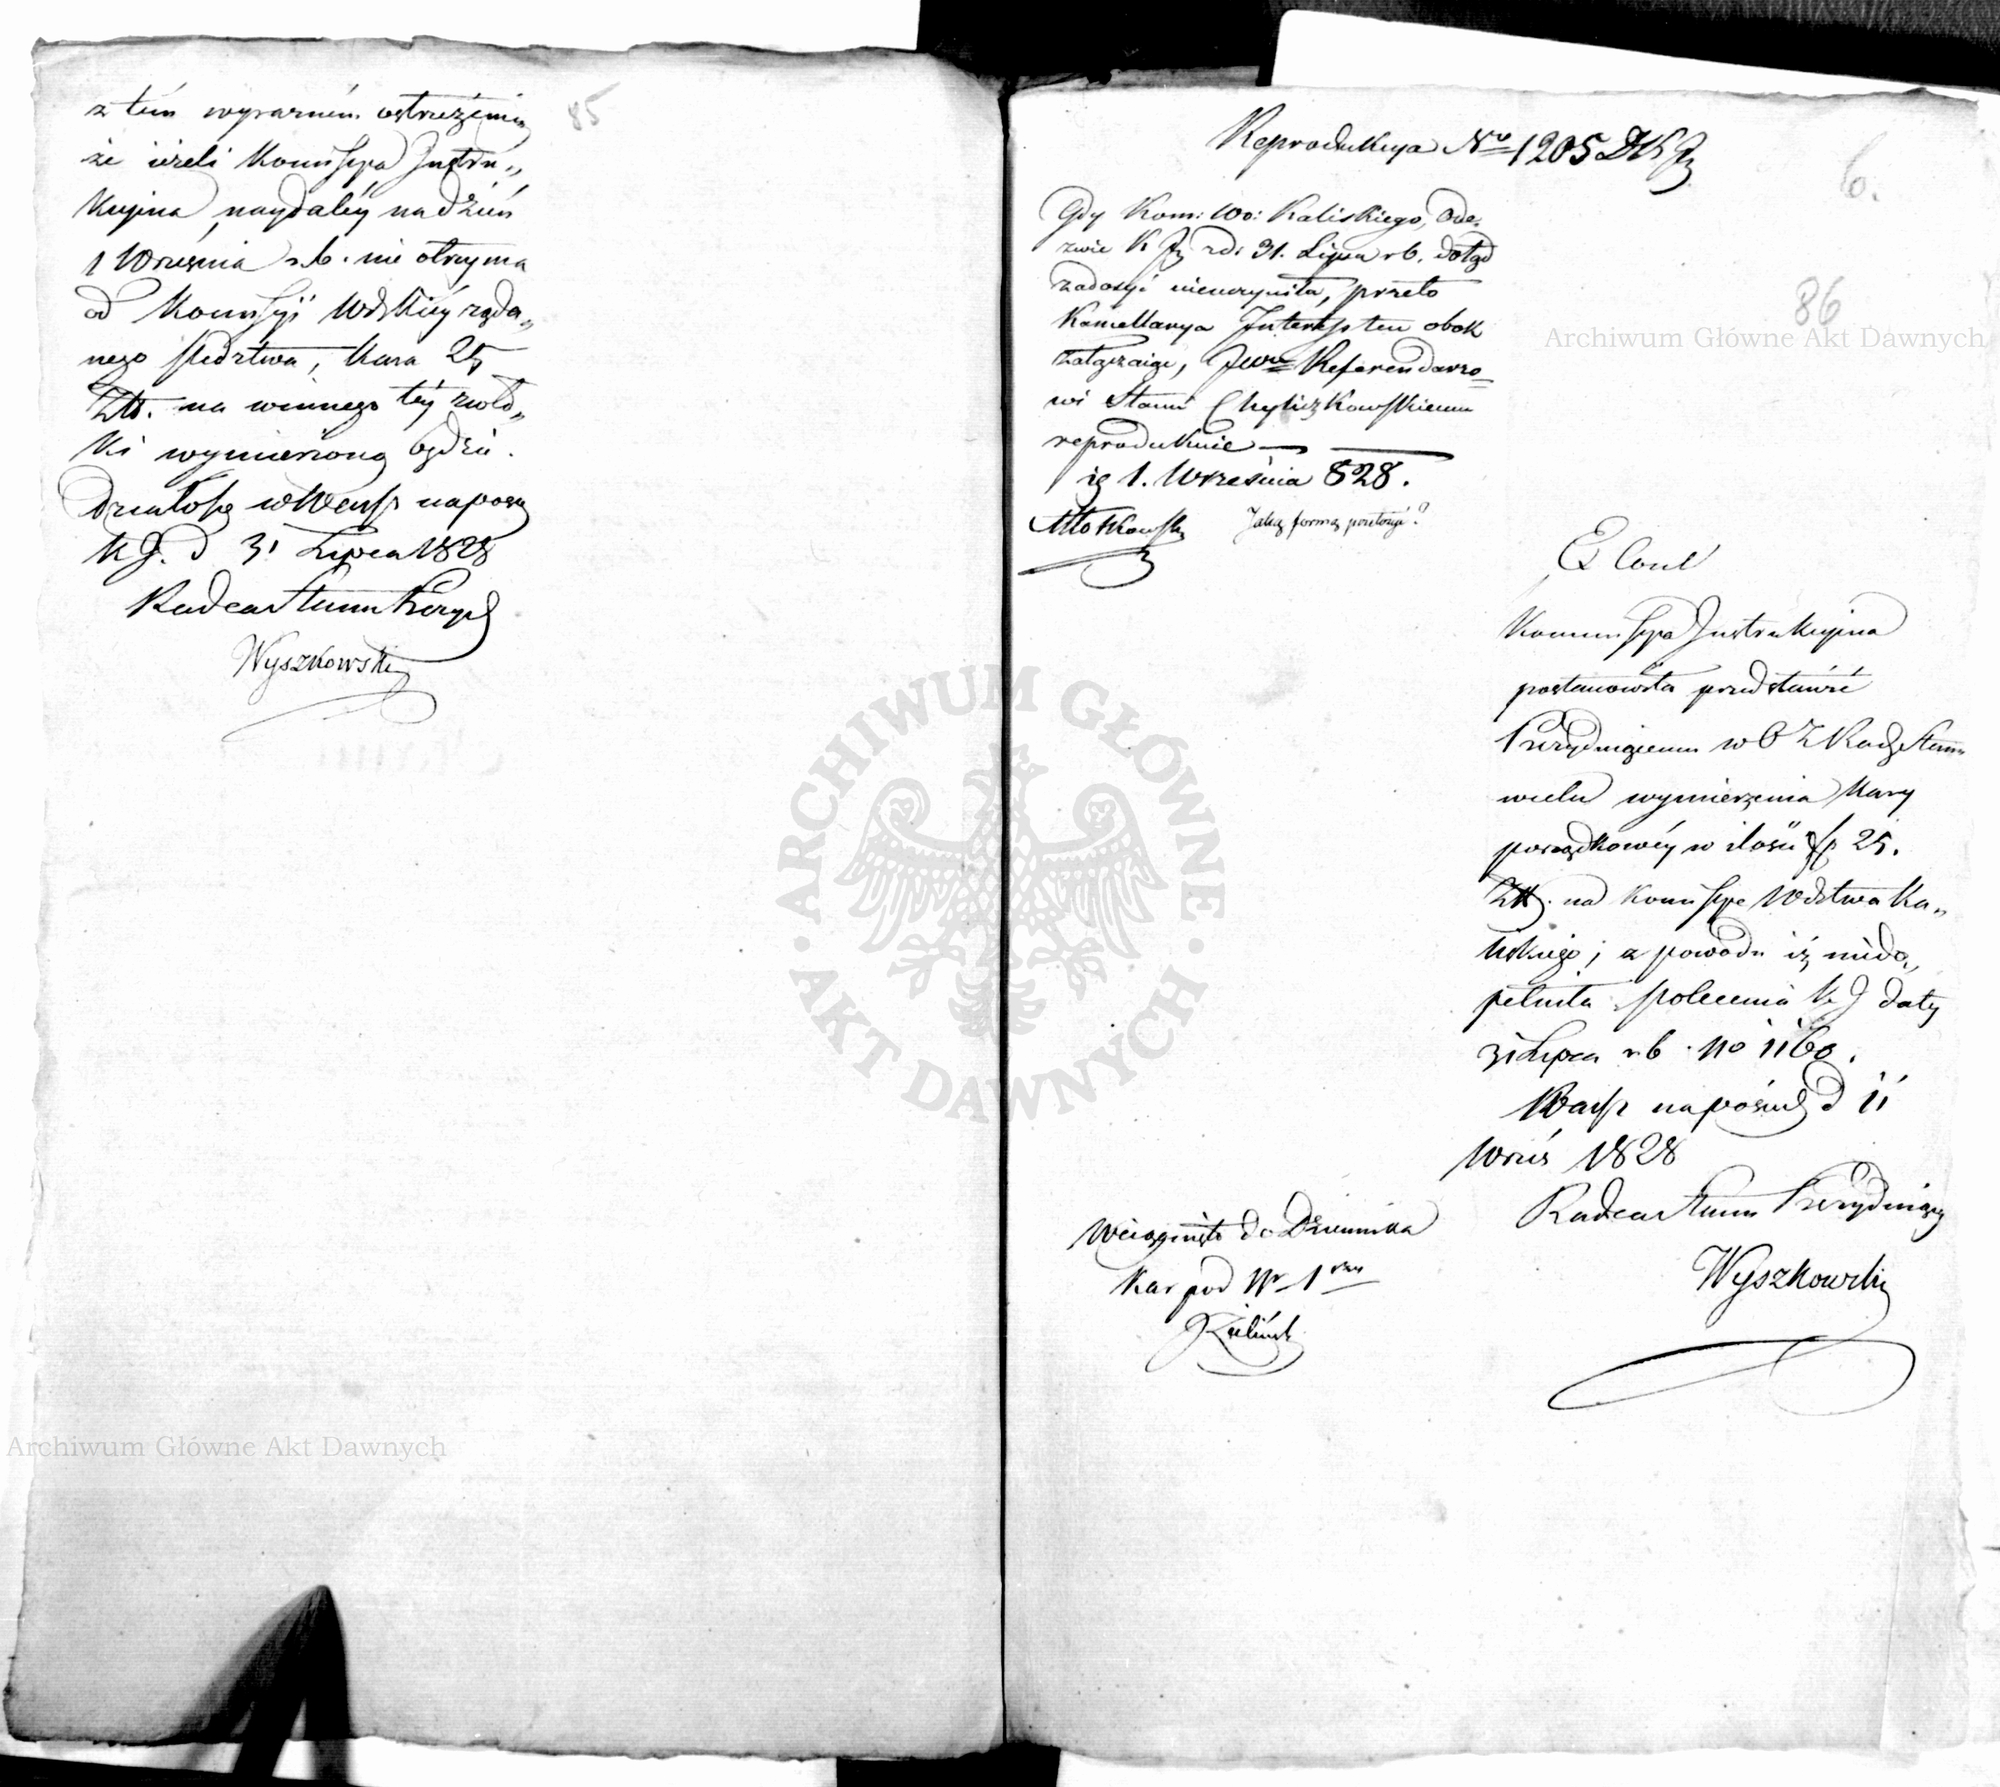 z tém wyraźném ostrzeżeniem
że ieżeli Kommissya Instru„
kcyina naydaléy na dzień
1 Września r.b. nie otrzyma
od Kommissyi Wdzkiéy żąda„
nego śledztwa, kara 25
Złł. na winnego téy zwło„
ki wymierzoną będzie.
Działo się w Warsz na posie
K J. d 31 Lipca 1828
Radca Stanu Prezyd
Wyszkowski
85
Reprodukcya Nro 1205 DKJ
6.
86
Gdy Kom: Wo: Kaliskiego, Ode„
zwie K J z d: 31. Lipca r b. dotąd
zadosyć nieuczyniła, przeto
Kancellarya Interess ten obok
załączaiąc, JWu Referendarzo„
wi Stanu Chyliczkowskiemu
reprodukuie
ię 1. Września 828.
Młotkowski
Jaką formą położyć?
Ex Conl
Kommissya Instrukcyina
postanowiła przedstawić
Prezyduiącemu w O Z Rady Stanu
wcelu wymierzenia kary
porządkowéy w ilości fp 25.
Złł. na Kommissye Wdztwa Ka„
liskiego; z powodu iż niedo„
pełniła polecenia K J daty
31 Lipca r b. no 1160.
Warsz na posied d 11
Wrześ 1828
Radca Stanu Prezyduiący
Wyszkowski
Wciągnięto do Dziennika
Kar pod Nr 1
Zieliński
Archiwum Główne Akt Dawnych
ARCHIWUM GŁÓWNE AKT DAWNYCH
Archiwum Główne Akt Dawnych